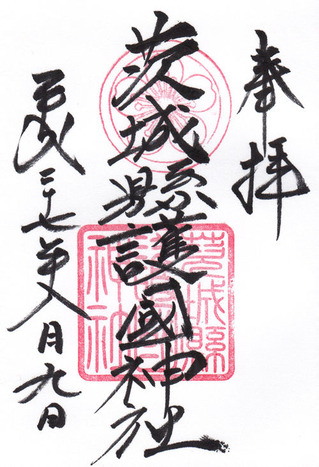 奉拝
茨城縣護國神社
平成二十七年八月九日
茨城縣
護國
神社